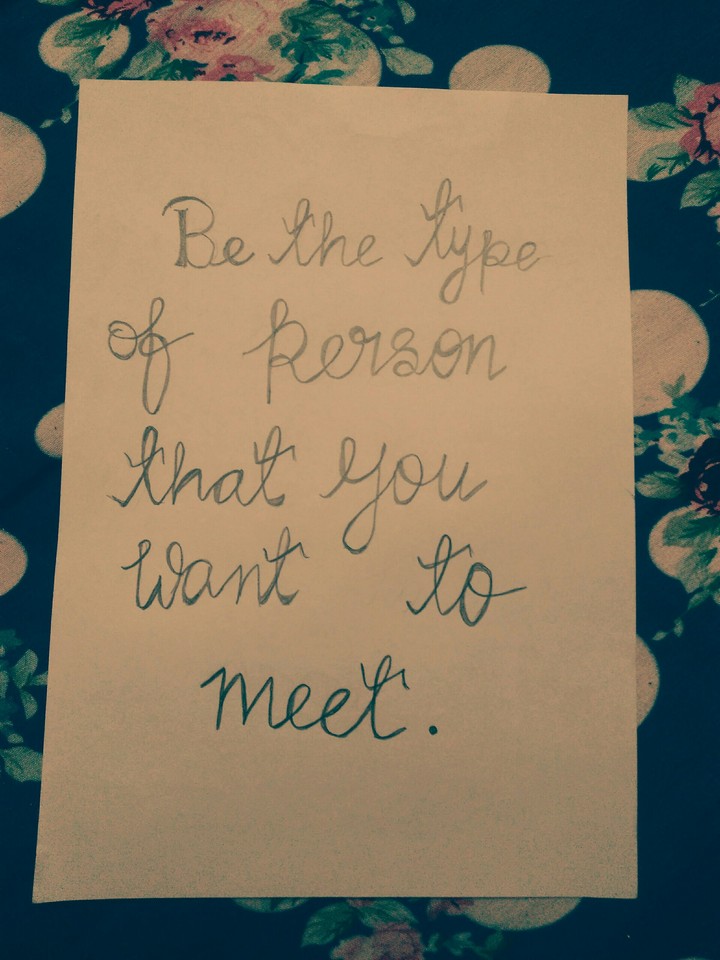 Be the type
of person
that you
want to
meet.